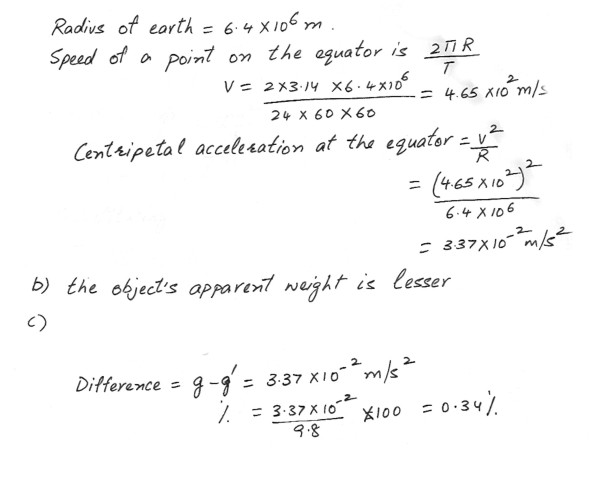 Radius of earth = 6.4 X 10⁶ m.
Speed of a point on the equator is 2πR / T
V = 2×3.14 ×6.4×10⁶ / 24 X 60 X 60 = 4.65 X10² m/s
Centripetal acceleration at the equator = v² / R
= (4.65 X 10²)² / 6.4 X 10⁶
= 3.37X10⁻² m/s²
b) the object's apparent weight is lesser
c)
Difference = g-g' = 3.37 X10⁻² m/s²
% = 3.37X10⁻² / 9.8 X100 = 0.34%